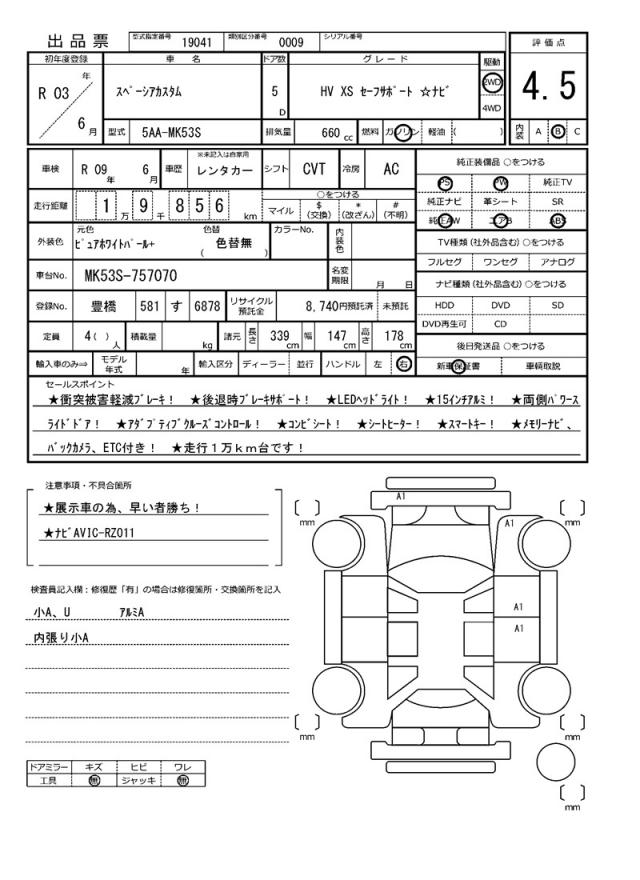 出品票 型式指定番号 19041 類別区分番号 0009 シリアル番号
評価点
4.5
内装 A B C
初年度登録 車名 ドア数 グレード 駆動
R 03 年 6 月
スペーシアカスタム 5 D HV XS セーフサポート ☆ナビ 2WD 4WD
型式 5AA-MK53S 排気量 660 cc 燃料 ガソリン 軽油 ( )
車検 R 09 年 6 月 車歴 ※未記入は自家用 レンタカー シフト CVT 冷房 AC
走行距離 1 万 9 千 8 5 6 km
○をつける
マイル $ (交換) * (改ざん) # (不明)
外装色 元色 ピュアホワイトパール+ 色替 ( 色替無 ) カラーNo. 内装色
車台No. MK53S-757070 名変期限 月 日
登録No. 豊橋 581 す 6878 リサイクル預託金 8,740円預託済 未預託
定員 4( ) 人 積載量 kg 諸元 長さ 339 cm 幅 147 cm 高さ 178 cm
輸入車のみ⇒ モデル年式 年 輸入区分 ディーラー 並行 ハンドル 左 右
純正装備品 ○をつける
PS PW 純正TV
純正ナビ 革シート SR
純正AW エアB ABS
TV種類 (社外品含む) ○をつける
フルセグ ワンセグ アナログ
ナビ種類 (社外品含む) ○をつける
HDD DVD SD
DVD再生可 CD
後日発送品 ○をつける
新車保証書 車輌取説
セールスポイント
★衝突被害軽減ブレーキ! ★後退時ブレーキサポート! ★LEDヘッドライト! ★15インチアルミ! ★両側パワース
ライドドア! ★アダプティブクルーズコントロール! ★コンビシート! ★シートヒーター! ★スマートキー! ★メモリーナビ、
バックカメラ、ETC付き! ★走行1万km台です!
注意事項・不具合箇所
★展示車の為、早い者勝ち!
★ナビAVIC-RZ011
検査員記入欄:修復歴「有」の場合は修復箇所・交換箇所を記入
小A、U アルミA
内張り小A
ドアミラー キズ ヒビ ワレ
工具 無 ジャッキ 無
A1
A1
A1
A1
mm
mm
mm
mm
mm